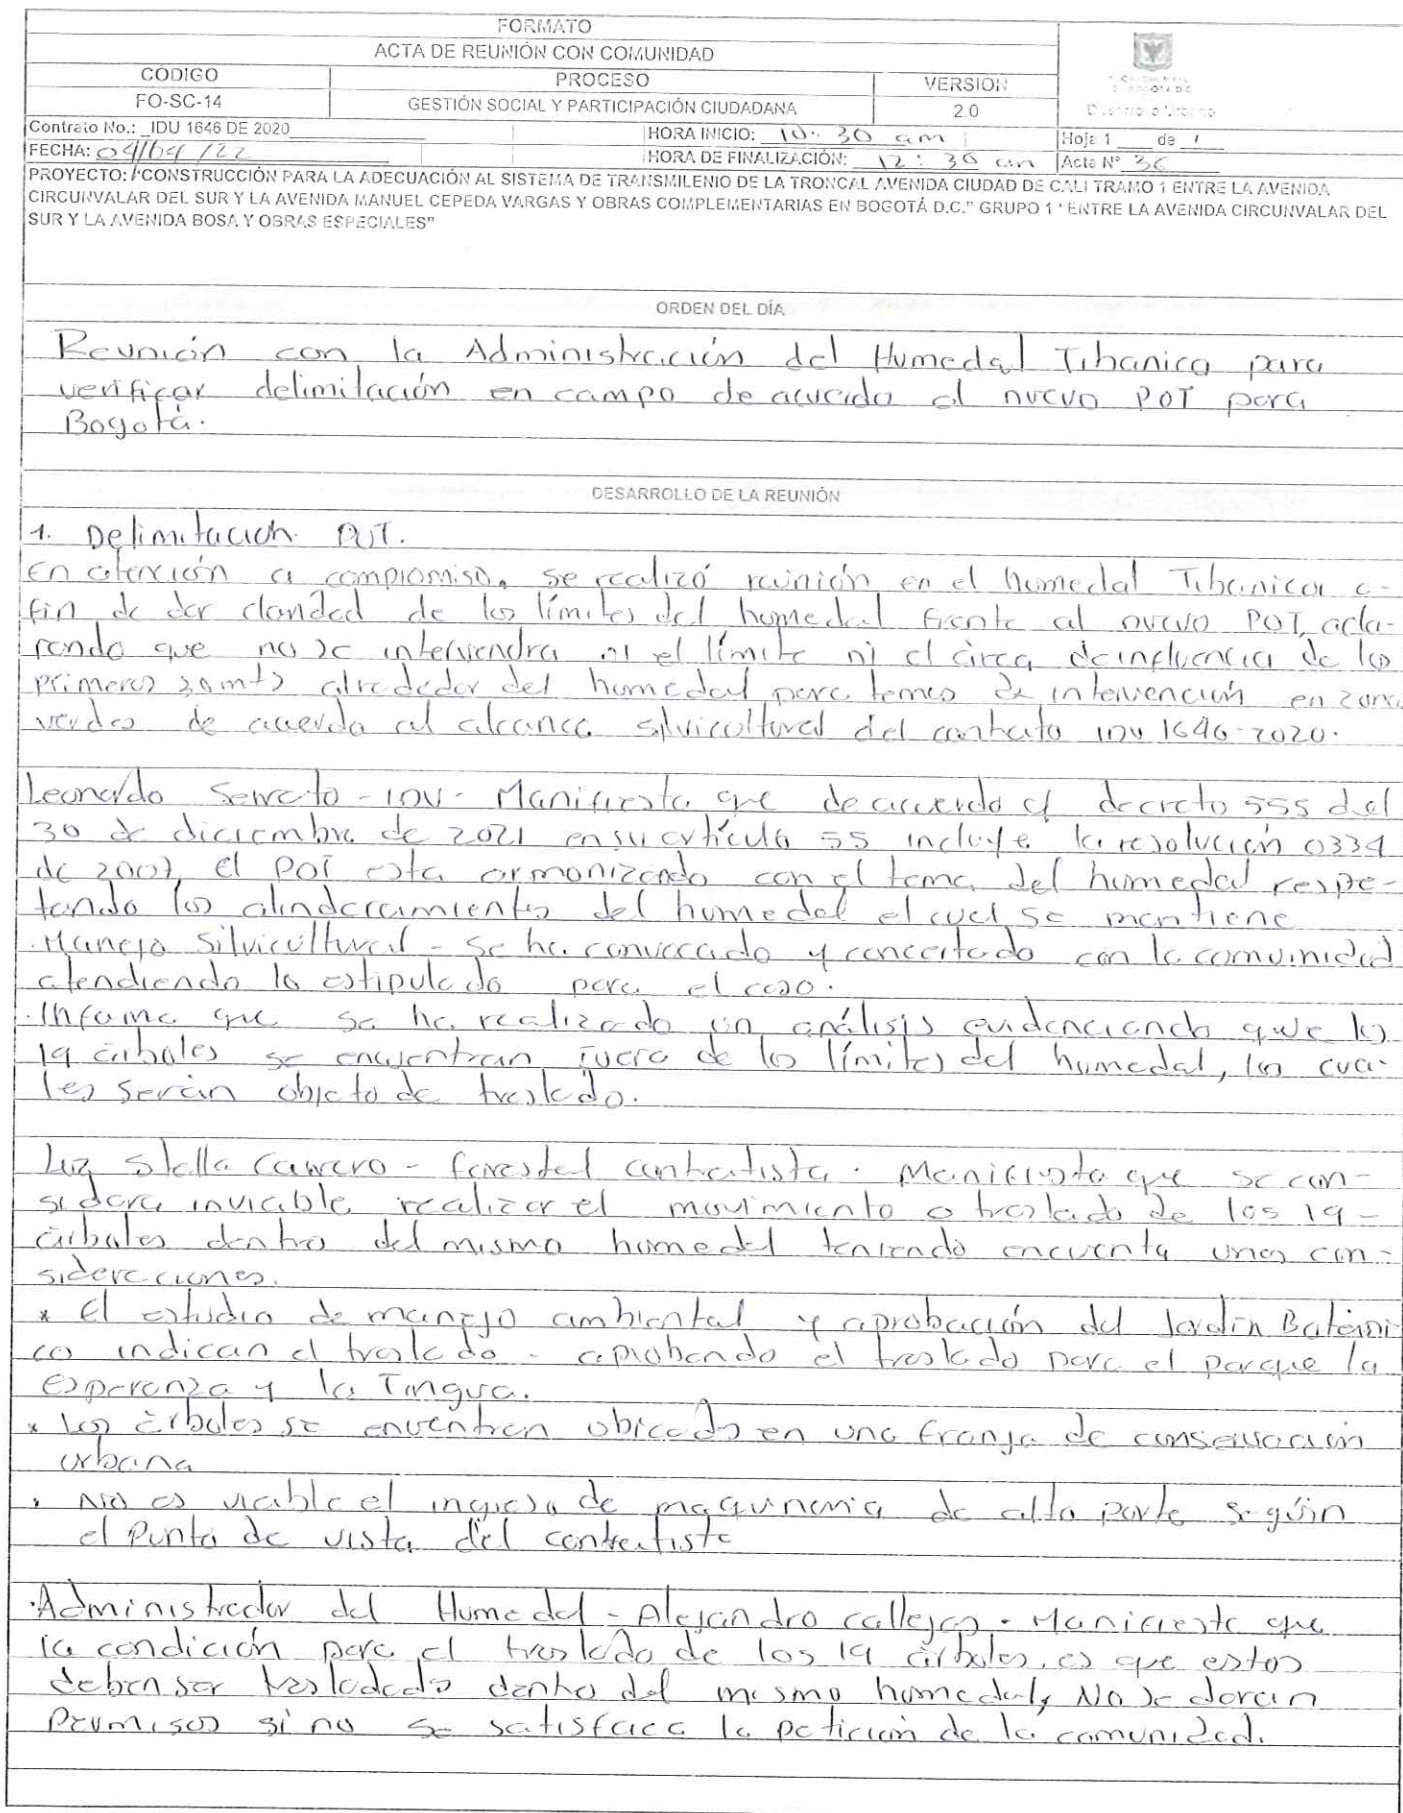 FORMATO
ACTA DE REUNIÓN CON COMUNIDAD
CÓDIGO PROCESO VERSIÓN
FO-SC-14 GESTIÓN SOCIAL Y PARTICIPACIÓN CIUDADANA 2.0
Contrato No.: _IDU 1646 DE 2020 HORA INICIO: 10:30 am Hoja 1 de 1
FECHA: 04/04/22 HORA DE FINALIZACIÓN: 12:30 am Acta Nº 36
PROYECTO: "CONSTRUCCIÓN PARA LA ADECUACIÓN AL SISTEMA DE TRANSMILENIO DE LA TRONCAL AVENIDA CIUDAD DE CALI TRAMO 1 ENTRE LA AVENIDA
CIRCUNVALAR DEL SUR Y LA AVENIDA MANUEL CEPEDA VARGAS Y OBRAS COMPLEMENTARIAS EN BOGOTÁ D.C." GRUPO 1 "ENTRE LA AVENIDA CIRCUNVALAR DEL
SUR Y LA AVENIDA BOSA Y OBRAS ESPECIALES"
ORDEN DEL DÍA
Reunión con la Administración del Humedal Tibanica para
verificar delimitación en campo de acuerdo al nuevo POT para
Bogotá.
DESARROLLO DE LA REUNIÓN
1. Delimitación POT.
En atención a compromiso, se realizó reunión en el humedal Tibanica a
fin de dar claridad de los límites del humedal frente al nuevo POT, acla-
rando que no se intervendra ni el límite ni el área de influencia de los
primeros 30 mts alrededor del humedal para temas de intervención en zona
verdes de acuerdo al alcance silvicultural del contrato IDU 1646-2020.
Leonardo - IDU - Manifiesta que de acuerdo al decreto 555 del
30 de diciembre de 2021 en su artículo 55 incluye la resolución 0334
de 2007, el POT esta armonizando con el tema del humedal respe-
tando los alinderamientos del humedal el cual se mantiene
. Manejo Silvicultural - Se ha conversado y concertado con la comunidad
atendiendo lo estipulado para el caso.
. Informa que se ha realizado un análisis evidenciando que los
19 árboles se encuentran fuera de los límites del humedal, los cua-
les serán objeto de traslado.
Luz Stella - forestal contratista. Manifiesta que se con-
sidera inviable realizar el movimiento o traslado de los 19 -
árboles dentro del mismo humedal teniendo encuenta unas con-
sideraciones.
* El estudio de manejo ambiental y aprobación del Jardín Botáni
co indican el traslado - aprobando el traslado para el parque la
esperanza y la Tingua.
* Los árboles se encuentran ubicados en una franja de conservación
urbana
. No es viable el ingreso de maquinaria de alto porte según
el punto de vista del contratista
. Administrador del Humedal - Alejandro callejas - Manifiesta que
la condición para el traslado de los 19 árboles, es que estos
deben ser trasladados dentro del mismo humedal, No se daran
Permisos si no se satisface la petición de la comunidad.